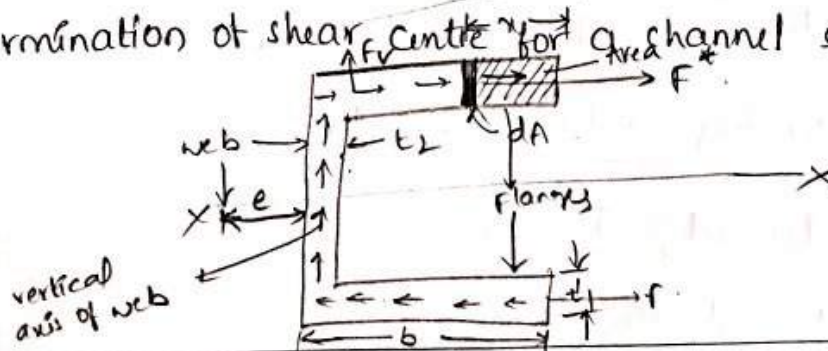 rmination of shear centre for a channel s
x
Fv
Area
F*
web
t2
dA
X
e
Flanges
X
vertical
axis of web
t1
F
b